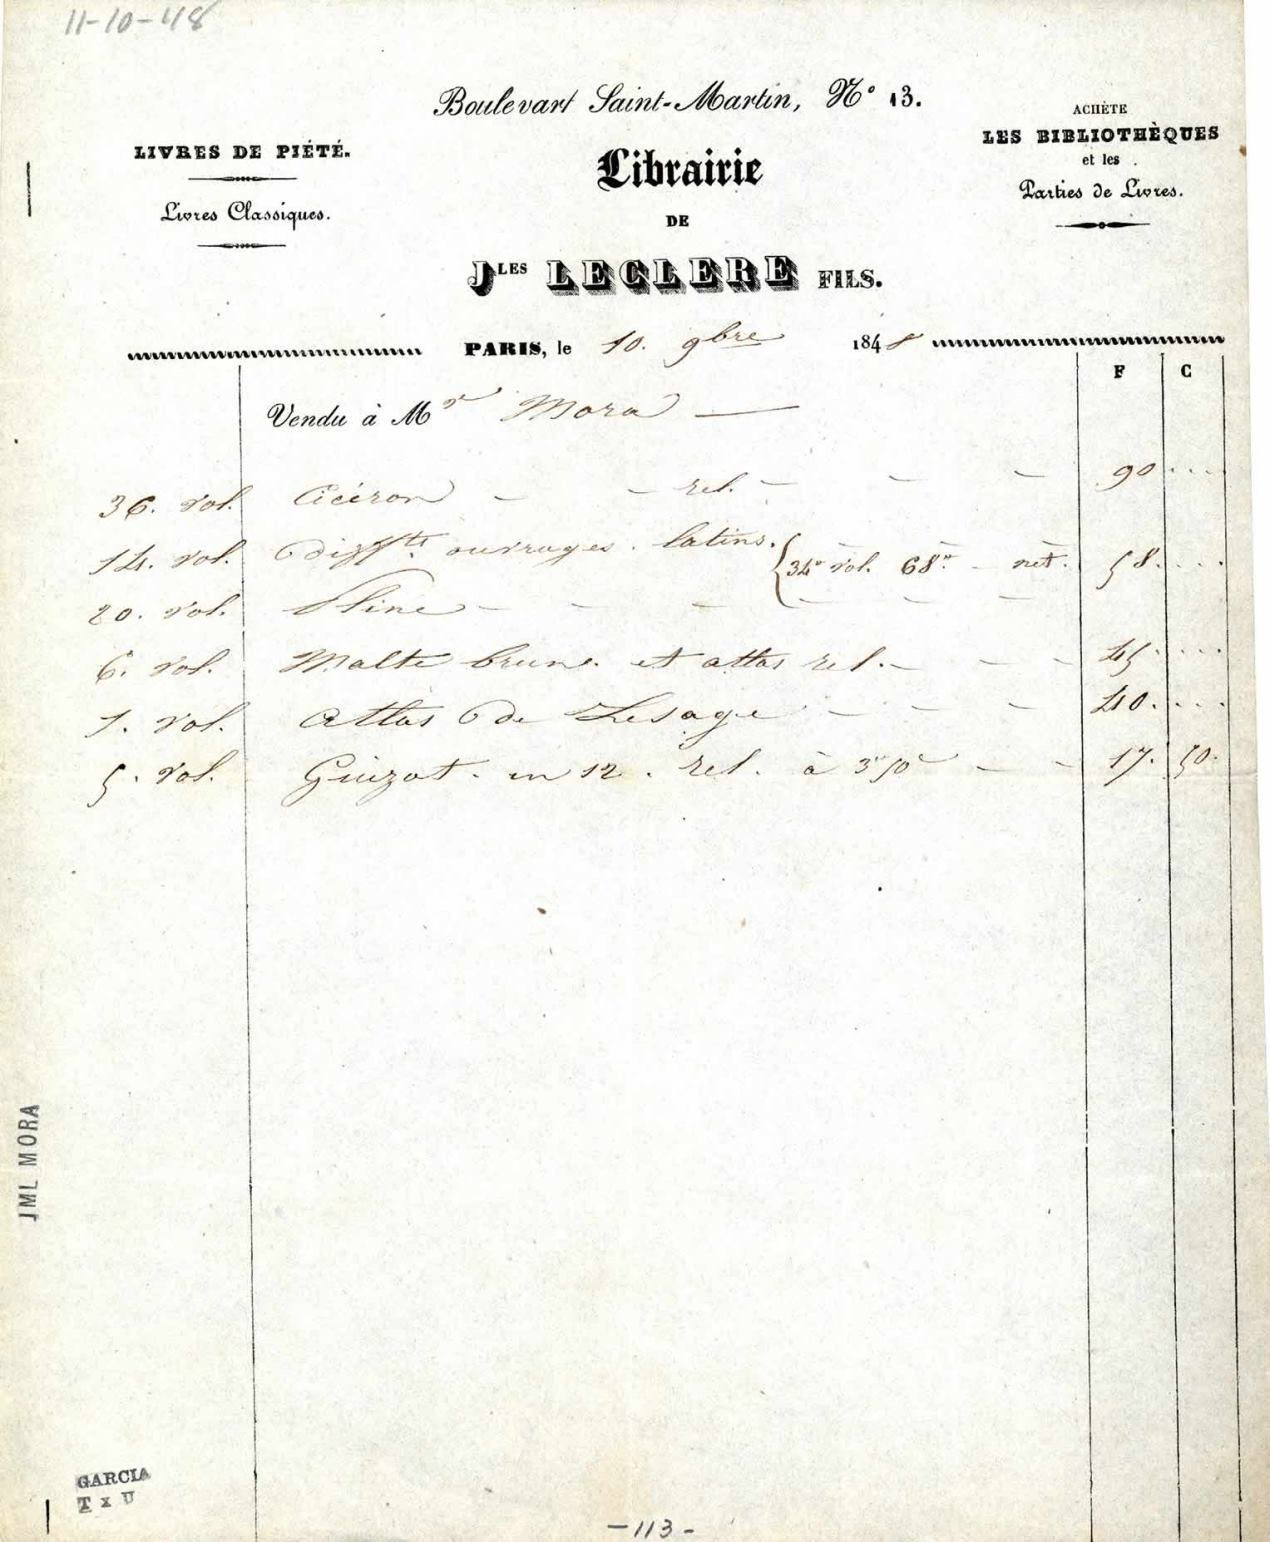 11-10-48
Boulevart Saint-Martin, N° 13.
LIVRES DE PIÉTÉ.
Livres Classiques.
Librairie
DE
JLES LECLERE FILS.
ACHÈTE
LES BIBLIOTHÈQUES
et les
Parties de Livres.
PARIS, le 10. 9bre 1848
F C
Vendu à Mr Mora
36. vol. Cicéron - - rel. - - - 90 ....
14. vol. Diffts ouvrages latins.
{ 34 vol. 68 - net. 58. ...
20. vol. Pline - - - - - -
6. vol. Malte brune. et atlas rel. - - - 45. ...
1. vol. Atlas de Lesage - - - 40. ...
5. vol. Guizot. in 12. rel. à 3f 50c - - 17. 50.
JML MORA
GARCIA
T x U
-113-